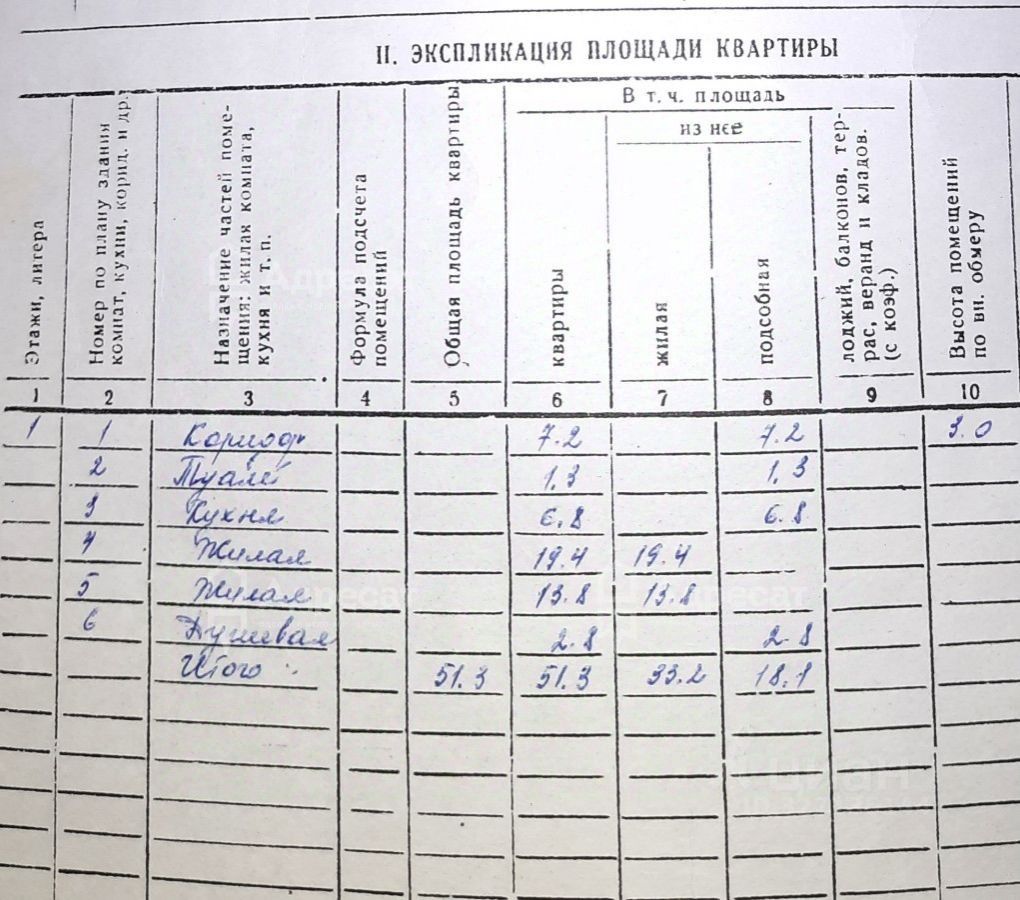 II. ЭКСПЛИКАЦИЯ ПЛОЩАДИ КВАРТИРЫ
Этажи, литера
Номер по плану здания
комнат, кухни, корид. и др.
Назначение частей поме-
щения: жилая комната,
кухня и т. п.
Формула подсчета
помещений
Общая площадь квартиры
В т. ч. площадь
квартиры
из нее
жилая
подсобная
лоджий, балконов, тер-
рас, веранд и кладов.
(с коэф.)
Высота помещений
по вн. обмеру
1 2 3 4 5 6 7 8 9 10
1 1 Коридор 7.2 7.2 3.0
2 Туалет 1.3 1.3
3 Кухня 6.8 6.8
4 Жилая 19.4 19.4
5 Жилая 13.8 13.8
6 Душевая 2.8 2.8
Итого 51.3 51.3 33.2 18.1
Адресат
Адресат
Адресат
циан